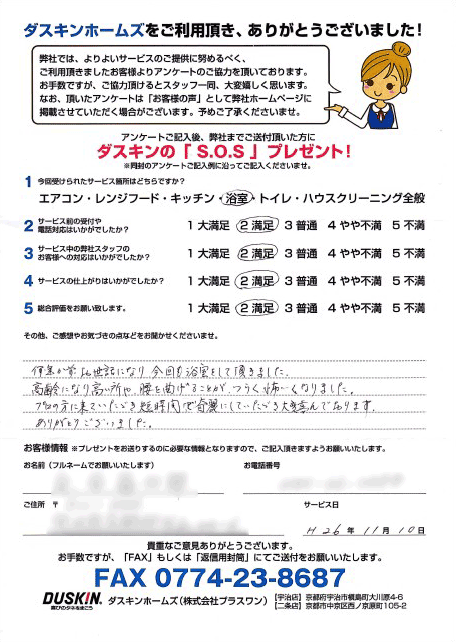 ダスキンホームズをご利用頂き、ありがとうございました!
弊社では、よりよいサービスのご提供に努めるべく、
ご利用頂きましたお客様よりアンケートのご協力を頂いております。
お手数ですが、ご協力頂けるとスタッフ一同、大変嬉しく思います。
なお、頂いたアンケートは「お客様の声」として弊社ホームページに
掲載させていただく場合がございます。予めご了承くださいませ。
アンケートご記入後、弊社までご送付頂いた方に
ダスキンの「S.O.S」プレゼント!
※同封のアンケートご記入例に沿ってご記入くださいませ。
1 今回受けられたサービス箇所はどちらですか?
エアコン・レンジフード・キッチン・浴室・トイレ・ハウスクリーニング全般
2 サービス前の受付や
電話対応はいかがでしたか?
1 大満足 2 満足 3 普通 4 やや不満 5 不満
3 サービス中の弊社スタッフの
お客様への対応はいかがでしたか?
1 大満足 2 満足 3 普通 4 やや不満 5 不満
4 サービスの仕上がりはいかがでしたか?
1 大満足 2 満足 3 普通 4 やや不満 5 不満
5 総合評価をお願い致します。
1 大満足 2 満足 3 普通 4 やや不満 5 不満
その他、ご感想やお気づきの点などをお聞かせくださいませ。
世話になり 今回も浴室をして頂きました。
高齢になり高い所や 腰を曲げることが、つらく怖くなりました。
プロの方に来ていただき短時間で奇麗にしていただき大変喜んでおります。
ありがとうございました。
お客様情報 ※プレゼントをお送りするのに必要な情報となりますので、ご記入頂きますようお願いいたします。
お名前(フルネームでお願いいたします)
お電話番号
ご住所 〒
サービス日
H 26 年 11 月 10 日
貴重なご意見ありがとうございます。
お手数ですが、「FAX」もしくは「返信用封筒」にてご送付をお願いいたします。
FAX 0774-23-8687
DUSKIN
喜びのタネをまこう
ダスキンホームズ(株式会社プラスワン)
【宇治店】京都府宇治市槇島町大川原4-6
【二条店】京都市中京区西ノ京原町105-2